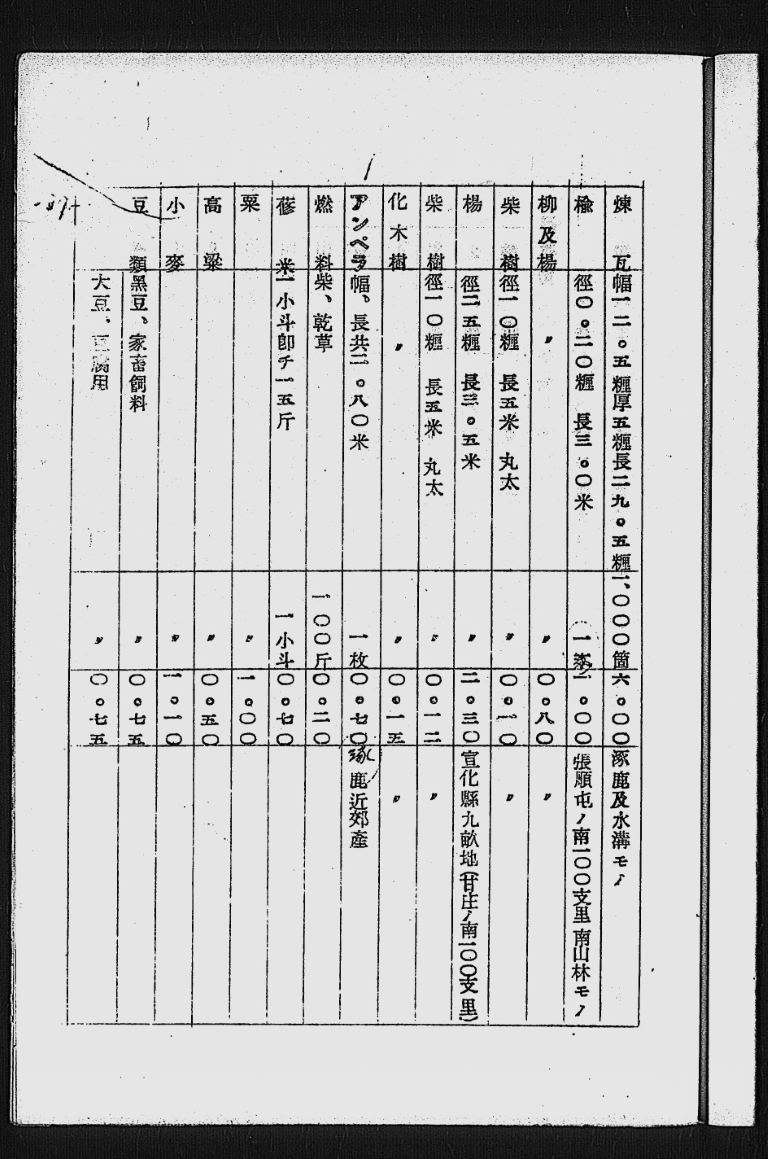 煉瓦 幅一二。五糎厚五糎長二九。五糎 一、〇〇〇箇 六。〇〇 涿鹿及水溝モノ
楡 徑〇。二〇糎 長三。〇米 一 一。〇〇 張順屯ノ南一〇〇支里南山林モノ
柳及楊 〃 〃 〇。八〇 〃
柴樹 徑一〇糎 長五米 丸太 〃 〇。一〇 〃
楊 徑二五糎 長三。五米 〃 二。三〇 宣化縣九畝地(甘庄ノ南一〇〇支里)
柴樹 徑一〇糎 長五米 丸太 〃 〇。一二 〃
化木樹 〃 〃 〇。一五 〃
アンペラ 幅、長共二。八〇米 一枚 〇。七〇 涿鹿近郊產
燃料 柴、乾草 一〇〇斤 〇。二〇
米 一小斗卽チ一五斤 一小斗 〇。七〇
粟 〃 一。〇〇
高粱 〃 〇。五〇
小麥 〃 一。一〇
豆類 黑豆、家畜飼料 〃 〇。七五
大豆、豆腐用 〃 〇。七五